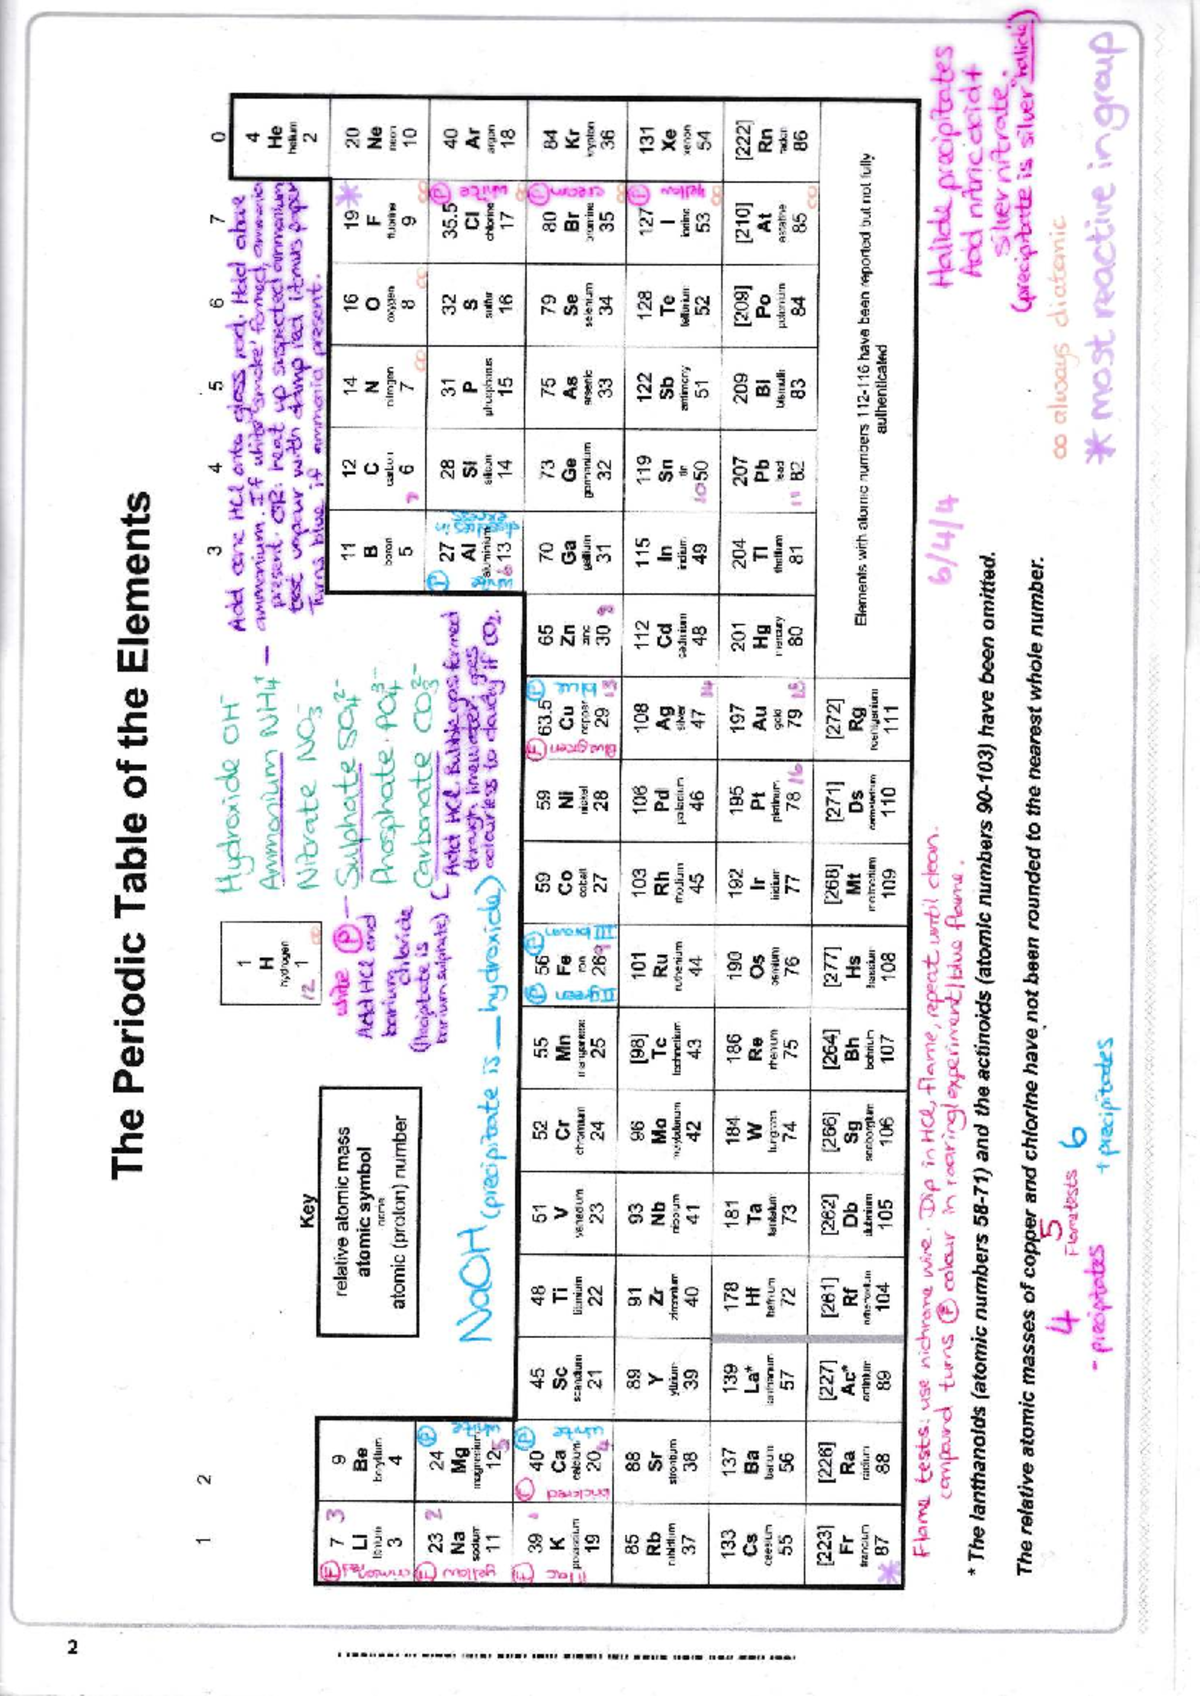 The Periodic Table of the Elements
1 2 3 4 5 6 7 0
Key
relative atomic mass
atomic symbol
name
atomic (proton) number
1 H hydrogen 1 12
4 He helium 2
Hydroxide OH⁻
Ammonium NH₄⁺ —
Nitrate NO₃⁻
Sulphate SO₄²⁻
Phosphate PO₄³⁻
Carbonate CO₃²⁻
Add conc HCl onto glass rod. Hold above
ammonium. If white 'smoke' formed, ammonia
present. OR: heat up suspected ammonium
test vapour with damp red litmus paper
Turns blue if ammonia present.
white (P) —
Add HCl and
barium chloride
(Precipitate is
barium sulphate)
(Add HCl. Bubble gas formed
through limewater, goes
colourless to cloudy if CO₂.
NaOH (precipitate is __ hydroxide)
7 Li lithium 3
9 Be beryllium 4
11 B boron 5
12 C carbon 6
14 N nitrogen 7
16 O oxygen 8
19 F fluorine 9
20 Ne neon 10
23 Na sodium 11
24 Mg magnesium 12
27 Al aluminium 13
28 Si silicon 14
31 P phosphorus 15
32 S sulfur 16
35.5 Cl chlorine 17
40 Ar argon 18
39 K potassium 19
40 Ca calcium 20
45 Sc scandium 21
48 Ti titanium 22
51 V vanadium 23
52 Cr chromium 24
55 Mn manganese 25
56 Fe iron 26
59 Co cobalt 27
59 Ni nickel 28
63.5 Cu copper 29
65 Zn zinc 30
70 Ga gallium 31
73 Ge germanium 32
75 As arsenic 33
79 Se selenium 34
80 Br bromine 35
84 Kr krypton 36
85 Rb rubidium 37
88 Sr strontium 38
89 Y yttrium 39
91 Zr zirconium 40
93 Nb niobium 41
96 Mo molybdenum 42
[98] Tc technetium 43
101 Ru ruthenium 44
103 Rh rhodium 45
106 Pd palladium 46
108 Ag silver 47
112 Cd cadmium 48
115 In indium 49
119 Sn tin 50
122 Sb antimony 51
128 Te tellurium 52
127 I iodine 53
131 Xe xenon 54
133 Cs caesium 55
137 Ba barium 56
139 La* lanthanum 57
178 Hf hafnium 72
181 Ta tantalum 73
184 W tungsten 74
186 Re rhenium 75
190 Os osmium 76
192 Ir iridium 77
195 Pt platinum 78
197 Au gold 79
201 Hg mercury 80
204 Tl thallium 81
207 Pb lead 82
209 Bi bismuth 83
[209] Po polonium 84
[210] At astatine 85
[222] Rn radon 86
[223] Fr francium 87
[226] Ra radium 88
[227] Ac* actinium 89
[261] Rf rutherfordium 104
[262] Db dubnium 105
[266] Sg seaborgium 106
[264] Bh bohrium 107
[277] Hs hassium 108
[268] Mt meitnerium 109
[271] Ds darmstadtium 110
[272] Rg roentgenium 111
Elements with atomic numbers 112-116 have been reported but not fully
authenticated
Flame tests: use nichrome wire. Dip in HCl, flame, repeat until clean.
compound turns (F) colour in roaring/experiment/blue flame.
6/4/4
Halide precipitates
Add nitric acid +
silver nitrate.
(precipitate is silver halide)
∞ always diatomic
* most reactive in group
* The lanthanoids (atomic numbers 58-71) and the actinoids (atomic numbers 90-103) have been omitted.
The relative atomic masses of copper and chlorine have not been rounded to the nearest whole number.
4
- precipitates
5
Flame tests
6
+ precipitates
2